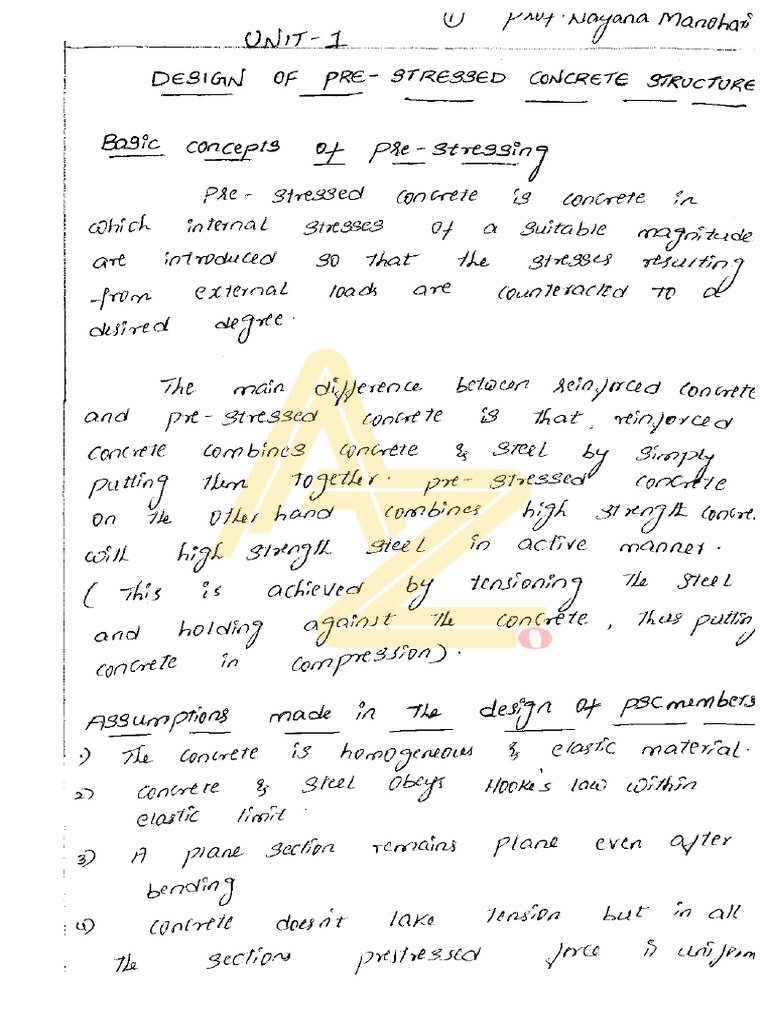 ① Prof. Nayana Manohari
UNIT-1
DESIGN OF PRE-STRESSED CONCRETE STRUCTURE
Basic concepts of Pre-stressing
Pre-stressed concrete is concrete in
which internal stresses of a suitable magnitude
are introduced so that the stresses resulting
from external loads are counteracted to a
desired degree.
The main difference between reinforced concrete
and pre-stressed concrete is that, reinforced
concrete combines concrete & steel by simply
putting them together. pre-stressed concrete
on the other hand combines high strength concre
with high strength steel in active manner.
(This is achieved by tensioning the steel
and holding against the concrete, thus putting
concrete in compression).
Assumptions made in the design of PSC members
1) The concrete is homogeneous & elastic material.
2) concrete & steel obeys Hooke's law within
elastic limit.
3) A plane section remains plane even after
bending
4) concrete doesn't take tension but in all
the sections prestressed force is uniform
AZ